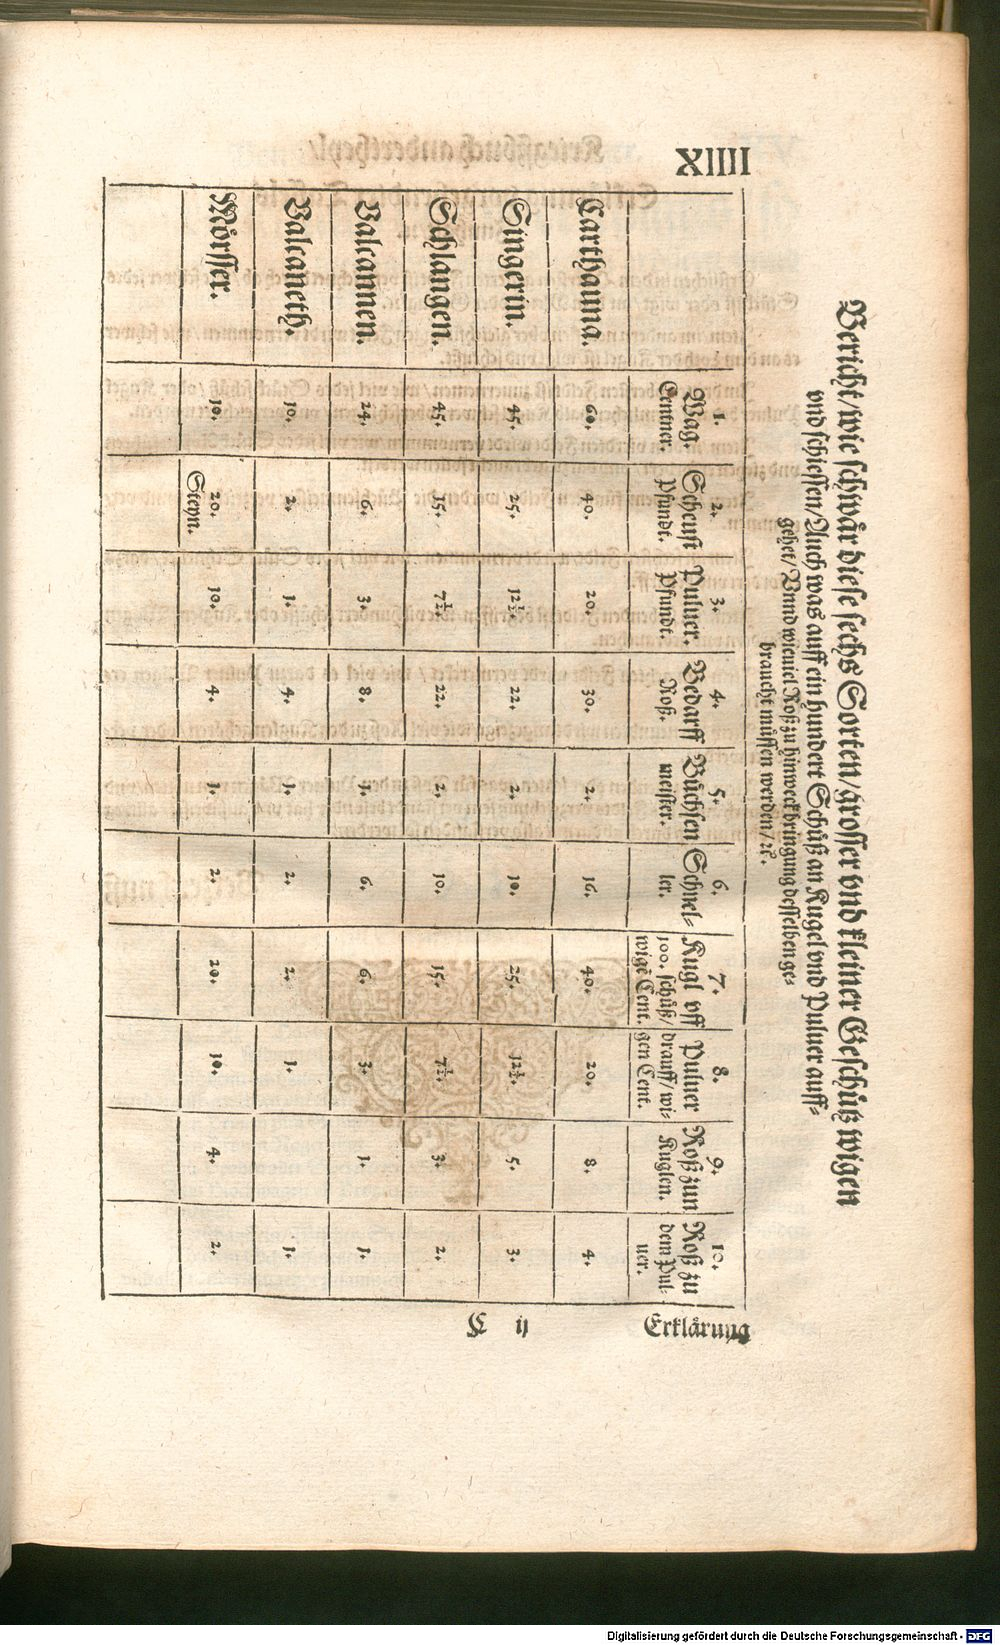 XIIII
Bericht/wie schwår diese sechs Sorten/grosser vnd kleiner Geschütz wigen
vnd schiessen/Auch was auff ein hundert Schüß an Kugel vnd Puluer auff-
gehet/Vnnd wieuiel Roß zu hinweckbringung desselben ge-
braucht müssen werden/ꝛc.
1. 2. 3. 4. 5. 6. 7. 8. 9. 10.
Wag. Scheust Puluer. Bedarff Büchsen Schnel- Kugl vff Puluer Roß zun Roß zu
Centner. Pfundt. Pfundt. Roß. meister. ler. 100. schüß/ drauff/wi- Kuglen. dem Pul-
wigē Cent. gen Cent. uer.
Carthauna. 60. 40. 20. 30. 2. 16. 40. 20. 8. 4.
Singerin. 45. 25. 12½. 22. 2. 10. 25. 12½. 5. 3.
Schlangen. 45. 15. 7½. 22. 2. 10. 15. 7½. 3. 2.
Valcannen. 24. 6. 3. 8. 1. 6. 6. 3. 1. 1.
Valcaneth. 10. 2. 1. 4. 1. 2. 2. 1. 1.
Mörsser. 10. 20. 10. 4. 1. 2. 20. 10. 4. 2.
Steyn.
C ij Erklårung
Digitalisierung gefördert durch die Deutsche Forschungsgemeinschaft - DFG